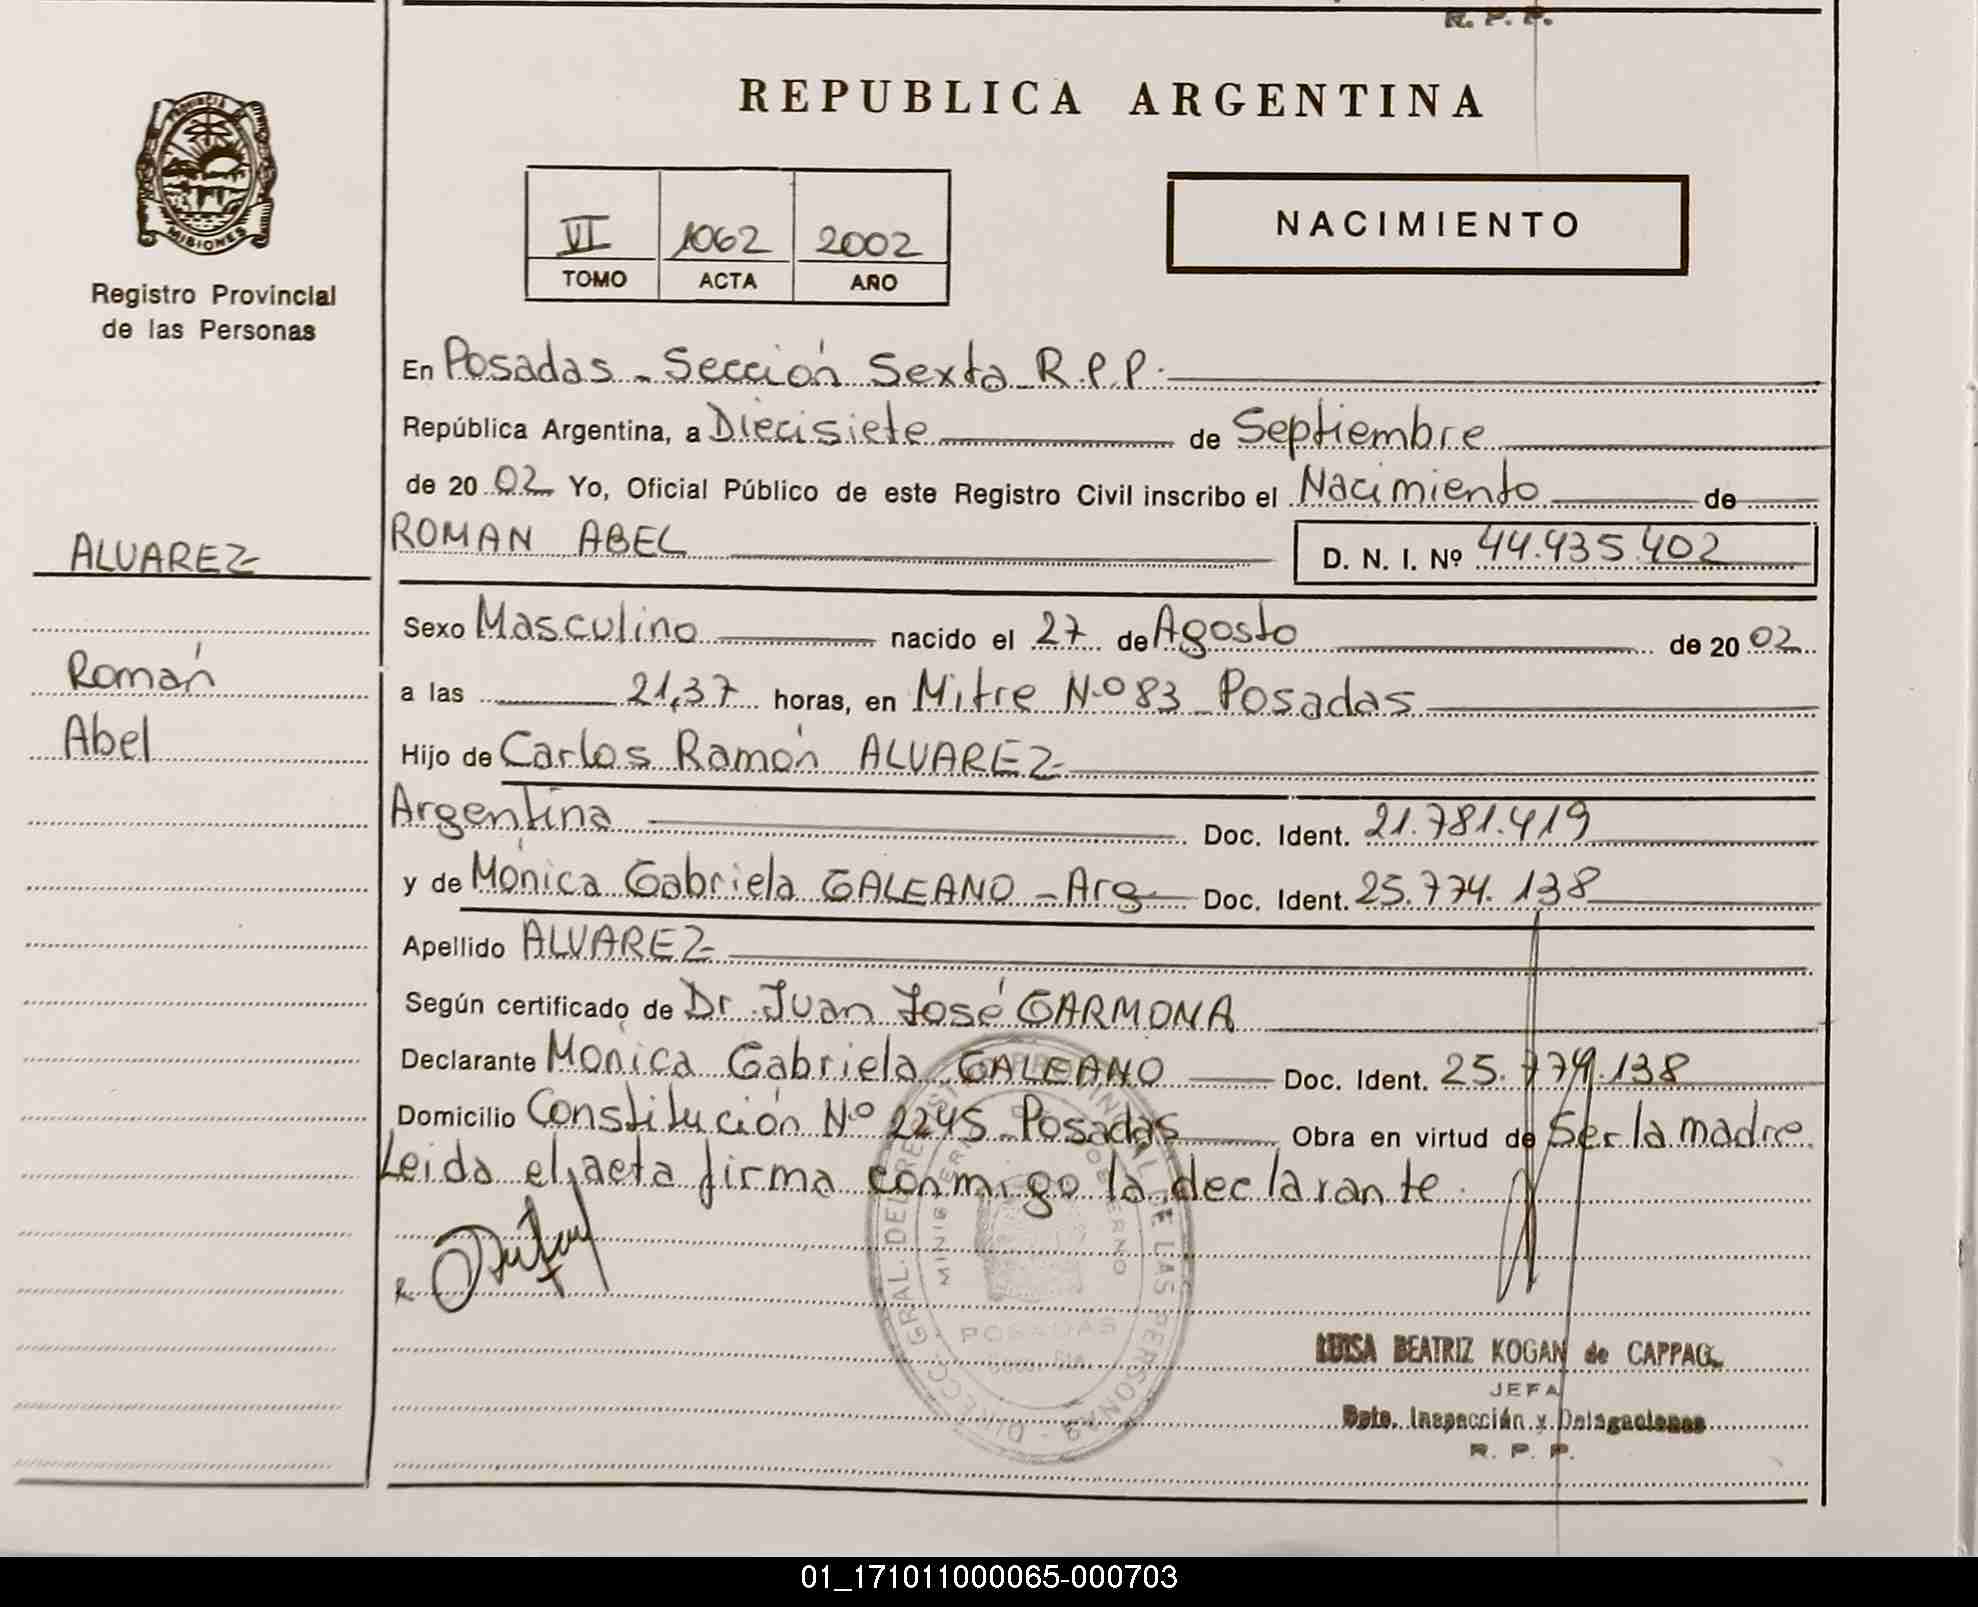 R. P. P.
REPUBLICA ARGENTINA
PROVINCIA
MISIONES
Registro Provincial
de las Personas
VI 1062 2002
TOMO ACTA AÑO
NACIMIENTO
En Posadas - Sección Sexta R.P.P.
República Argentina, a Diecisiete de Septiembre
de 2002 Yo, Oficial Público de este Registro Civil inscribo el Nacimiento de
ROMAN ABEL D. N. I. Nº 44.435.402
ALVAREZ
Román
Abel
Sexo Masculino nacido el 27 de Agosto de 2002
a las 21,37 horas, en Mitre N.º 83 Posadas
Hijo de Carlos Ramón ALVAREZ
Argentina Doc. Ident. 21.781.419
y de Mónica Gabriela GALEANO - Arg Doc. Ident. 25.774.138
Apellido ALVAREZ
Según certificado de Dr. Juan José GARMONA
Declarante Mónica Gabriela GALEANO Doc. Ident. 25.774.138
Domicilio Constitución N.º 2245 Posadas Obra en virtud de Ser la madre.
Leida el acta firma conmigo la declarante.
DIRECC. GRAL. DEL REGISTRO PROVINCIAL DE LAS PERSONAS
MINISTERIO DE GOBIERNO
POSADAS
LUISA BEATRIZ KOGAN de CAPPAG
JEFA
Dpto. Inspección y Delegaciones
R. P. P.
01_171011000065-000703